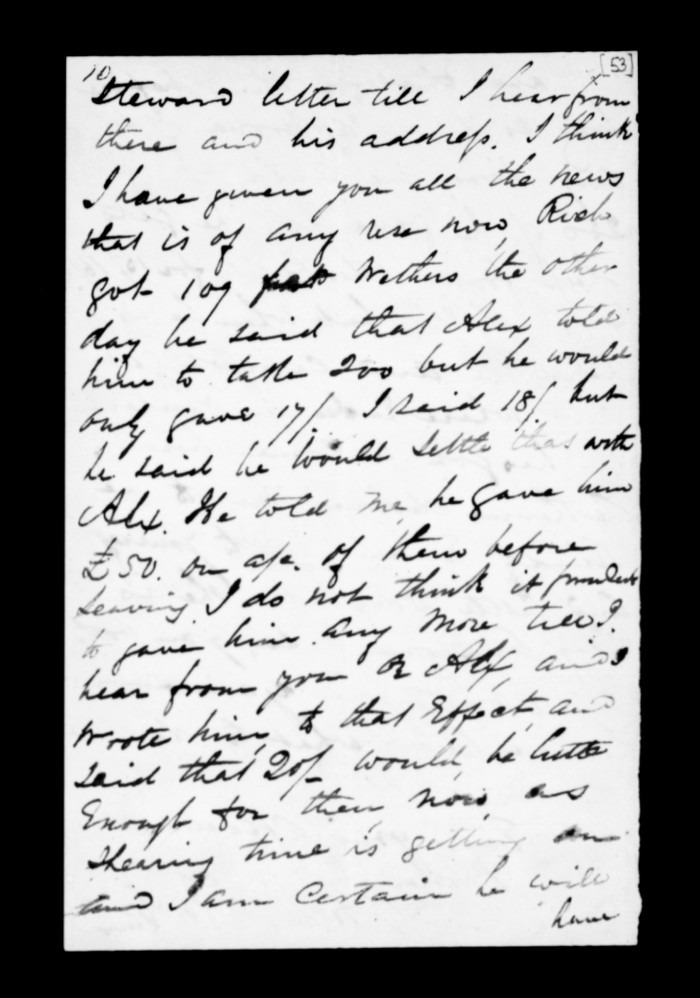 10 [53]
Steward letter till I hear from
there and his address. I think
I have given you all the news
that is of any use now, Rich
got 109 Wethers the other
day he said that Alex told
him to take 200 but he would
only gave 17/ I said 18/ but
he said he would settle that with
Alex. He told me, he gave him
£50. on a/c. of them before
leaving. I do not think it prudent
to gave him any more till I
hear from you or Alx, and I
wrote him, to that Effect, and
said that 20/ would, be little
Enough for them now, as
Shearing time is getting on
and I am Certain he will
have